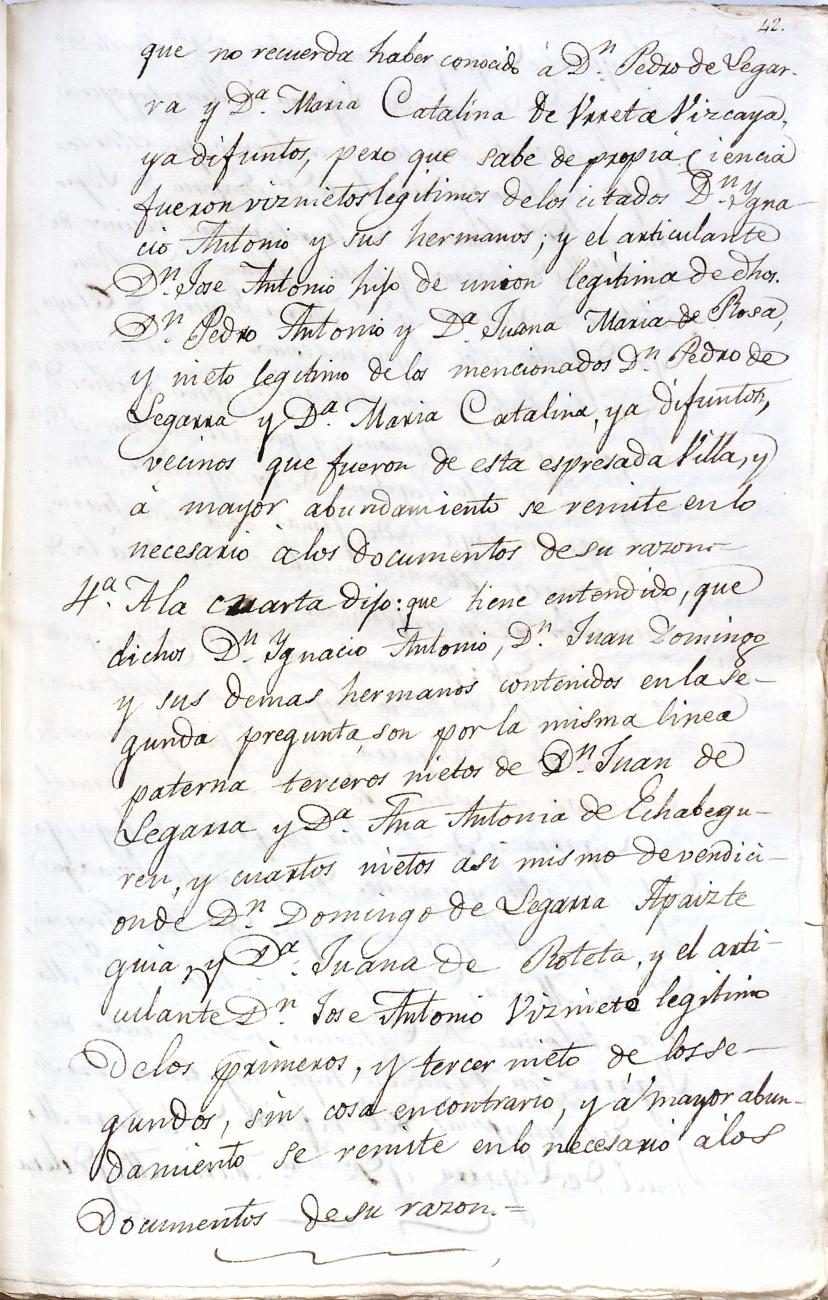 42.
que no recuerda haber conocido à Dn. Pedro de Legar-
ra y Da. Maria Catalina de Vrreta Vizcaya,
ya difuntos, pero que sabe de propia Ciencia
fueron viznietos legitimos delos citados Dn. Ygna-
cio Antonio y sus hermanos; y el articulante
Dn. Jose Antonio hijo de union legitima de dhos.
Dn. Pedro Antonio y Da. Juana Maria de Rosa,
y nieto legitimo de los mencionados Dn. Pedro de
Legarra y Da. Maria Catalina, ya difuntos,
vecinos que fueron de esta espresada Villa, y
à mayor abundamiento se remite en lo
necesario àlos documentos de su razon=
4a. Ala cuarta dijo: que tiene entendido, que
dichos Dn. Ygnacio Antonio, Dn. Juan Domingo
y sus demas hermanos contenidos en la se-
gunda pregunta, son por la misma linea
paterna terceros nietos de Dn. Juan de
Legarra y Da. Ana Antonia de Echabegu-
ren, y cuartos nietos asi mismo de vendici-
on de Dn. Domingo de Legarra Apaizte
guia, y Da. Juana de Roteta, y el arti-
culante Dn. Jose Antonio Viznieto legitimo
Delos primeros, y tercer nieto de los se-
gundos, sin cosa en contrario, y à mayor abun-
damiento se remite enlo necesario àlos
Documentos de su razon.=